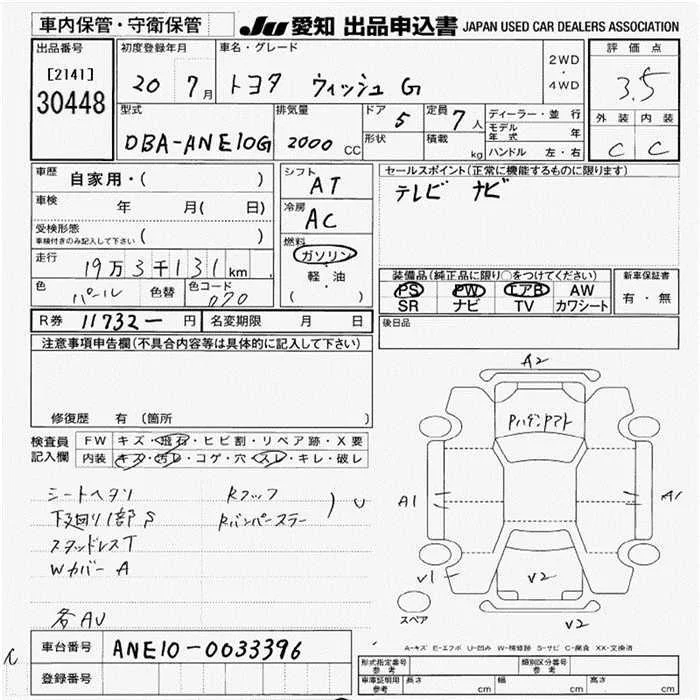 車内保管・守衛保管
JU 愛知 出品申込書 JAPAN USED CAR DEALERS ASSOCIATION
出品番号
[2141]
30448
初度登録年月
20 7月
車名・グレード
トヨタ ウィッシュ G
2WD
・
4WD
評価点
3.5
外装 内装
C C
型式
DBA-ANE10G
排気量
2000 CC
ドア 5
形状
定員 7人
積載 kg
ディーラー・並行
モデル年式 年
ハンドル 左・右
車歴 自家用・( )
車検 年 月( 日)
受検形態
車検付きのみ記入して下さい ( )
走行 19万3千131km
色 パール 色替 色コード 070
シフト AT
冷房 AC
燃料
ガソリン
軽・油
( )
セールスポイント(正常に機能するものに限ります)
テレビ ナビ
装備品(純正品に限り○をつけてください)
PS PW エアB AW
SR ナビ TV カワシート
新車保証書
有・無
R券 11732- 円 名変期限 月 日
後日品
注意事項申告欄(不具合内容等は具体的に記入して下さい)
修復歴 有 (箇所 )
検査員記入欄
FW キズ・飛石・ヒビ割・リペア跡・X要
内装 キズ・汚レ・コゲ・穴・スレ・キレ・破レ
シートヘタリ Rフック
下廻り1部S Rバンパースラー ) U
スタッドレスT
WカバーA
各AU
A2
A1
A1
V1
V2
V2
スペア
A-キズ E-エフボ U-凹み W-補修跡 S-サビ C-腐食 XX-交換済
車台番号 ANE10-0033396
登録番号
形式指定番号 参考
類別区分番号 参考
車庫証明用 参考 長さ cm 幅 cm 高さ cm